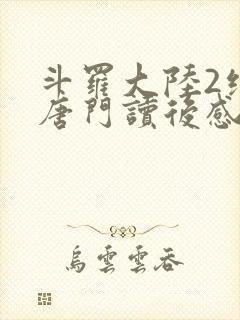 斗羅大陸2
唐門讀後感
烏雲雲吞